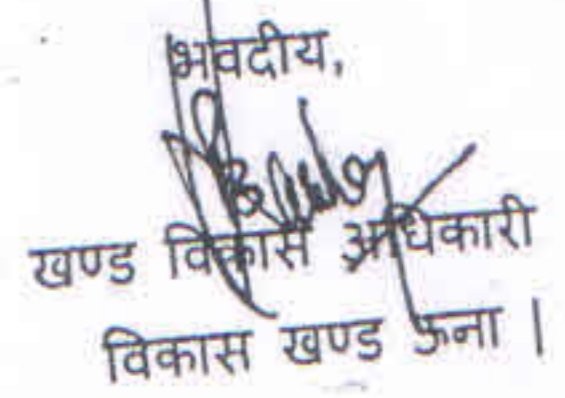 भवदीय,
खण्ड विकास अधिकारी
विकास खण्ड ऊना |